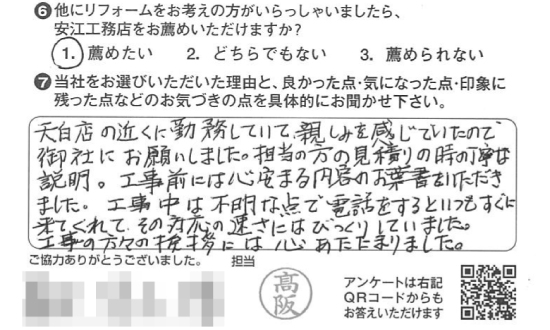 ❻他にリフォームをお考えの方がいらっしゃいましたら、
安江工務店をお薦めいただけますか?
1. 薦めたい 2. どちらでもない 3. 薦められない
❼当社をお選びいただいた理由と、良かった点・気になった点・印象に
残った点などのお気づきの点を具体的にお聞かせ下さい。
天白店の近くに勤務していて、親しみを感じていたので
御社にお願いしました。担当の方の見積りの時の丁寧な
説明。工事前には心安まる内容のお葉書をいただき
ました。工事中は不明な点で電話をするといつもすぐに
来てくれて、その対応の速さにはびっくりしていました。
工事の方々の挨拶には心あたたまりました。
ご協力ありがとうございました。 担当
高阪
アンケートは右記
QRコードからも
お答えいただけます